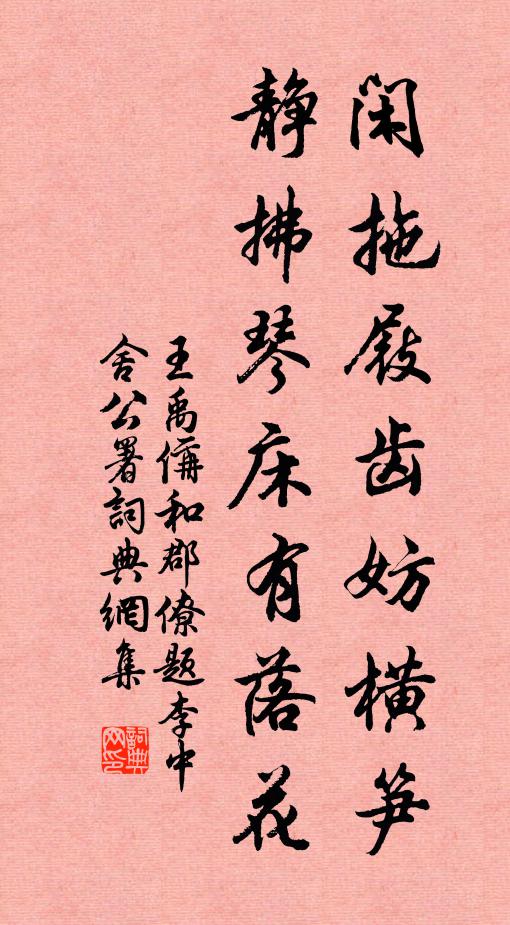 闲拖屐齿妨横笋
静拂琴床有落花
王禹偁和郡僚题李中
舍公署词典網集
詞典
网印